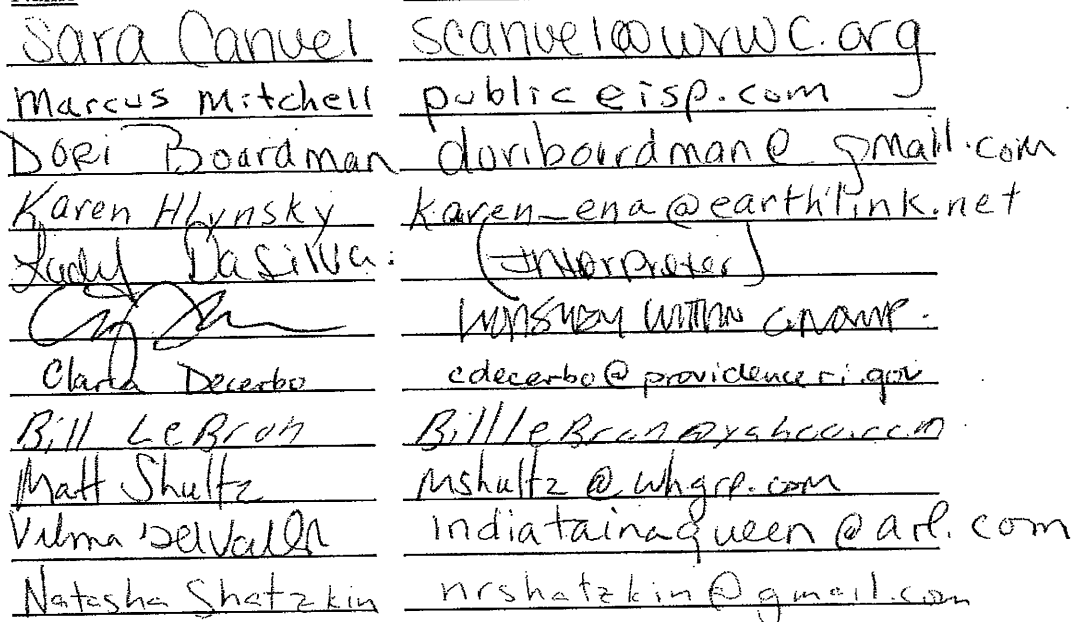 Sara Canuel scanuel@wrwc.org
Marcus Mitchell publiceisp.com
Dori Boardman doriboardman@gmail.com
Karen Hlynsky karen_ena@earthlink.net
Lady DaSilva: (Interpreter)
Clara Decerbo cdecerbo@providenceri.gov
Bill LeBron BillleBron@yahoo.com
Matt Shultz mshultz@whgrp.com
Vilma indiatainaqueen@aol.com
Natasha Shatzkin nrshatzkin@gmail.com